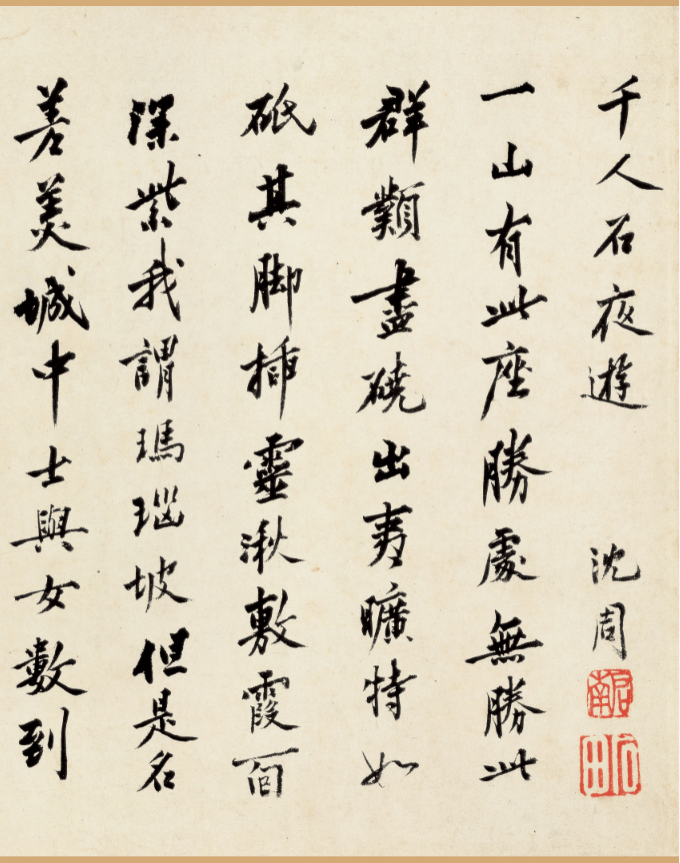 千人石夜遊 沈周
啓南
石田
一山有此座勝處無勝此
群類盡磽出夷曠特如
砥其脚插靈湫敷霞面
深紫我謂瑪瑙坡但是名
差美城中士與女數到